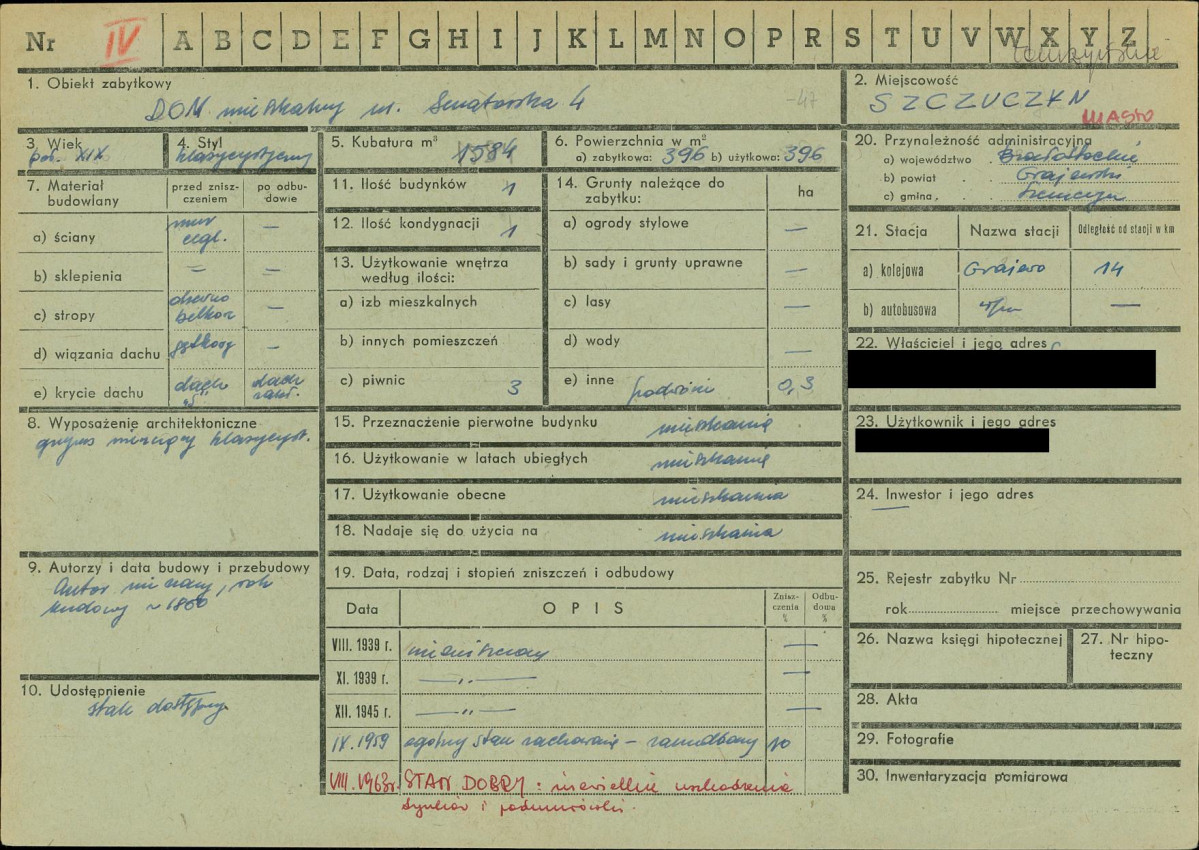 Nr IV A B C D E F G H I J K L M N O P R S T U V W X Y Z
1. Obiekt zabytkowy
DOM mieszkalny ul. Senatorska 4
-47
2. Miejscowość
SZCZUCZYN
MIASTO
3. Wiek
poł. XIX
4. Styl
klasycystyczny
5. Kubatura m³ 1584
6. Powierzchnia w m²
a) zabytkowa: 396 b) użytkowa: 396
7. Materiał budowiany
przed znisz-
czeniem
po odbu-
dowie
a) ściany mur cegl. —
b) sklepienia — —
c) stropy drewno belkow —
d) wiązania dachu —
e) krycie dachu dach dach
8. Wyposażenie architektoniczne
gzyms wieńczący klasycyst.
9. Autorzy i data budowy i przebudowy
Autor nie znany, rok
budowy ~ 1860
10. Udostępnienie
stale dostępny
11. Ilość budynków 1
12. Ilość kondygnacji 1
13. Użytkowanie wnętrza
według ilości:
a) izb mieszkalnych
b) innych pomieszczeń
c) piwnic 3
14. Grunty należące do
zabytku:
ha
a) ogrody stylowe —
b) sady i grunty uprawne —
c) lasy —
d) wody —
e) inne podwórze 0,3
15. Przeznaczenie pierwotne budynku mieszkanie
16. Użytkowanie w latach ubiegłych mieszkanie
17. Użytkowanie obecne mieszkania
18. Nadaje się do użycia na mieszkania
19. Data, rodzaj i stopień zniszczeń i odbudowy
Data OPIS
Znisz-
czenia
%
Odbu-
dowa
%
VIII. 1939 r. niezniszczony —
XI. 1939 r. —„— —
XII. 1945 r. —„— —
IX. 1959 ogólny stan zachowania – zaniedbany 10
VIII. 1963r. STAN DOBRY: niewielkie uszkodzenia
tynków i podmurówki.
20. Przynależność administracyjna
a) województwo Białostockie
b) powiat Grajewski
c) gmina
21. Stacja Nazwa stacji Odległość od stacji w km
a) kolejowa Grajewo 14
b) autobusowa —
22. Właściciel i jego adres
23. Użytkownik i jego adres
24. Inwestor i jego adres
—
25. Rejestr zabytku Nr
rok miejsce przechowywania
26. Nazwa księgi hipotecznej
27. Nr hipo-
teczny
28. Akta
29. Fotografie
30. Inwentaryzacja pomiarowa